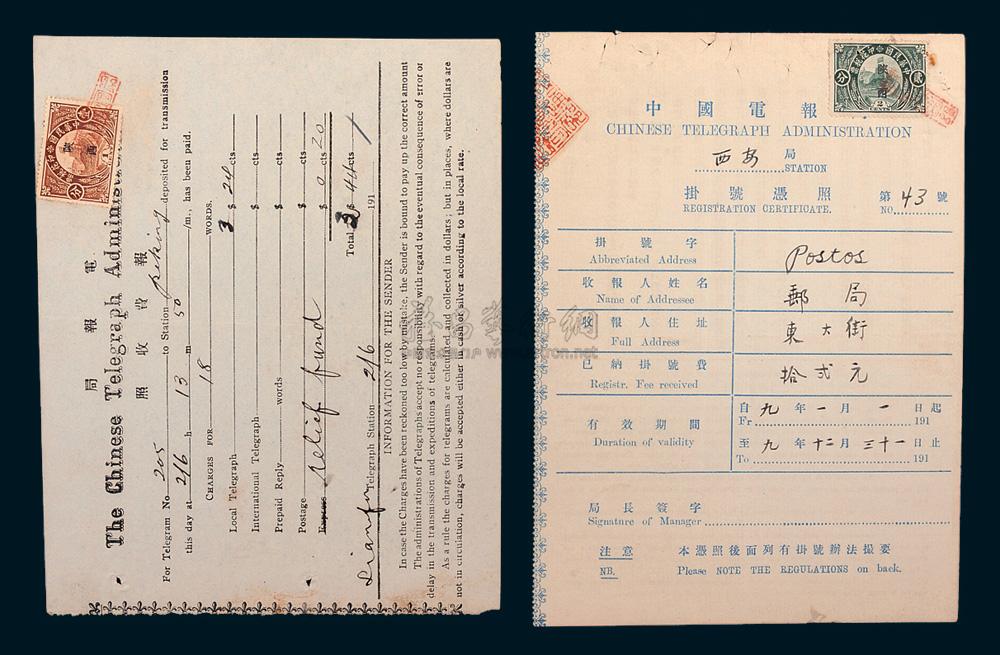 The Chinese Telegraph Administ
局 報 電
照 收 費 報
For Telegram No. 205 deposited for transmission
this day at 2/6 h 13 m 50 to Station Peking /m, has been paid.
CHARGES FOR 18 WORDS.
Local Telegraph 3 $ 24 cts
International Telegraph $ cts
Prepaid Reply words $ cts
Postage $ cts
Express relief fund $ 0 20 cts
Total $ 44 cts
Sianfu Telegraph Station 2/6 191
INFORMATION FOR THE SENDER
In case the Charges have been reckoned too low by mistake, the Sender is bound to pay up the correct amount
The administrations of Telegraphs accept no responsibility with regard to the eventual consequence of error or
delay in the transmission and expeditions of telegrams.
As a rule the charges for telegrams are calculated and collected in dollars; but in places, where dollars are
not in circulation, charges will be accepted either in cash or silver according to the local rate.
中 國 電 報
CHINESE TELEGRAPH ADMINISTRATION
西安 局
STATION
掛 號 憑 照 第 43 號
REGISTRATION CERTIFICATE. NO.
掛 號 字
Abbreviated Address
Postos
收 報 人 姓 名
Name of Addressee
郵 局
收 報 人 住 址
Full Address
東 大 街
已 納 掛 號 費
Registr. Fee received
拾 弍 元
有 效 期 間
Duration of validity
自 九 年 一 月 一 日 起
Fr 191
至 九 年 十二 月 三十一 日 止
To 191
局 長 簽 字
Signature of Manager
注 意 本 憑 照 後 面 列 有 掛 號 辦 法 撮 要
NB. Please NOTE THE REGULATIONS on back.